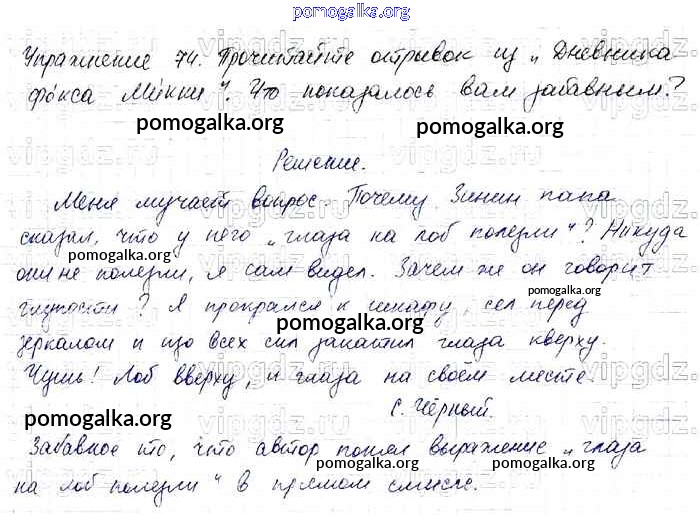 pomogalka.org
Упражнение 74. Прочитайте отрывок из „Дневника
фокса Микки". Что показалось вам забавным?
pomogalka.org pomogalka.org
Решение.
Меня мучает вопрос. Почему Зинин папа
сказал, что у него „глаза на лоб полезли"? Никуда
они не полезли, я сам видел. Зачем же он говорит
pomogalka.org pomogalka.org
глупости? Я прокрался к шкафу, сел перед
pomogalka.org
зеркалом и изо всех сил закатил глаза кверху.
Чушь! Лоб вверху, и глаза на своём месте.
С. Чёрный.
pomogalka.org
Забавное то, что автор понял выражение „глаза
pomogalka.org pomogalka.org
на лоб полезли" в прямом смысле.